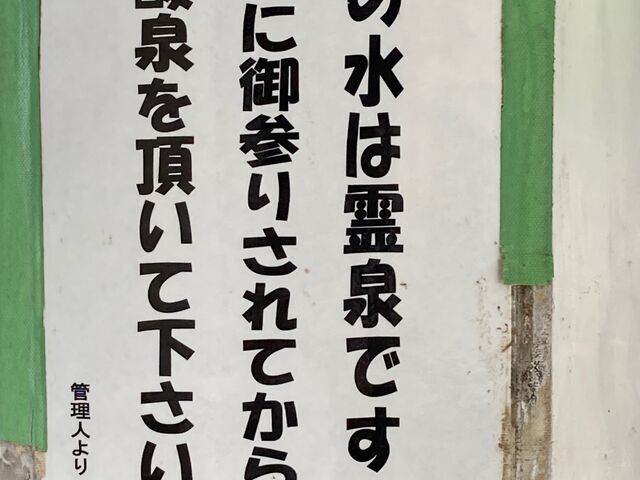 の水は霊泉です
に御参りされてから
泉を頂いて下さい
管理人より